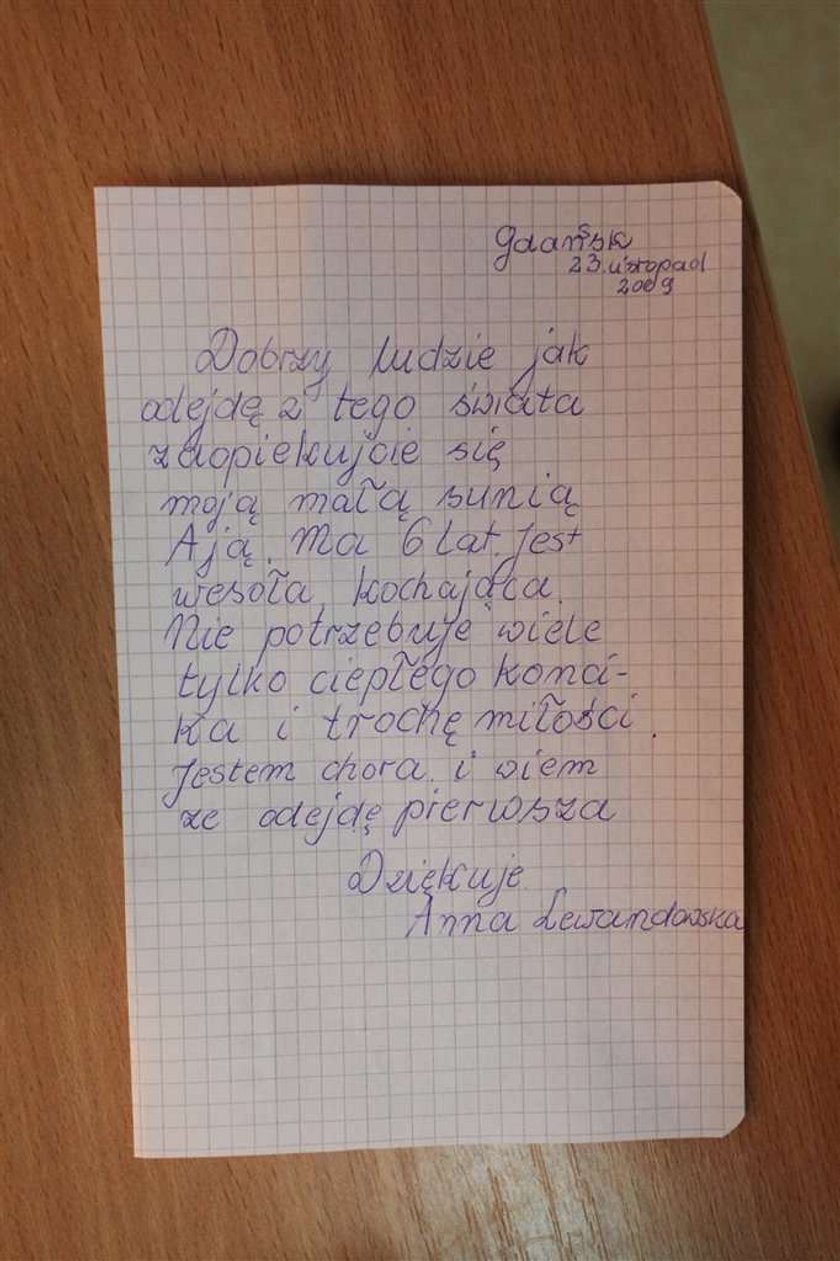 Gdańsk
23 listopad
2009
Dobrzy ludzie jak
odejdę z tego świata
zaopiekujcie się
moją małą sunią
Ają. Ma 6 lat. Jest
wesoła, kochająca.
Nie potrzebuje wiele
tylko ciepłego konci-
ka i trochę miłości.
Jestem chora i wiem
ze odejdę pierwsza
Dziękuje
Anna Lewandowska